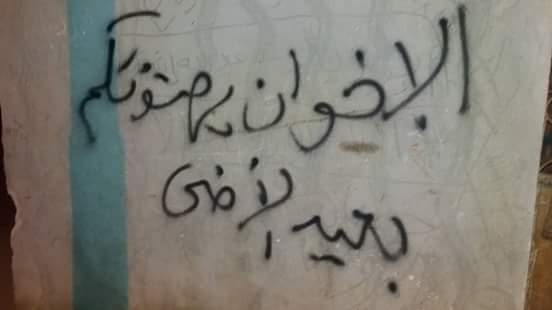 الإخوان يهنئونكم
بعيد الأضحى